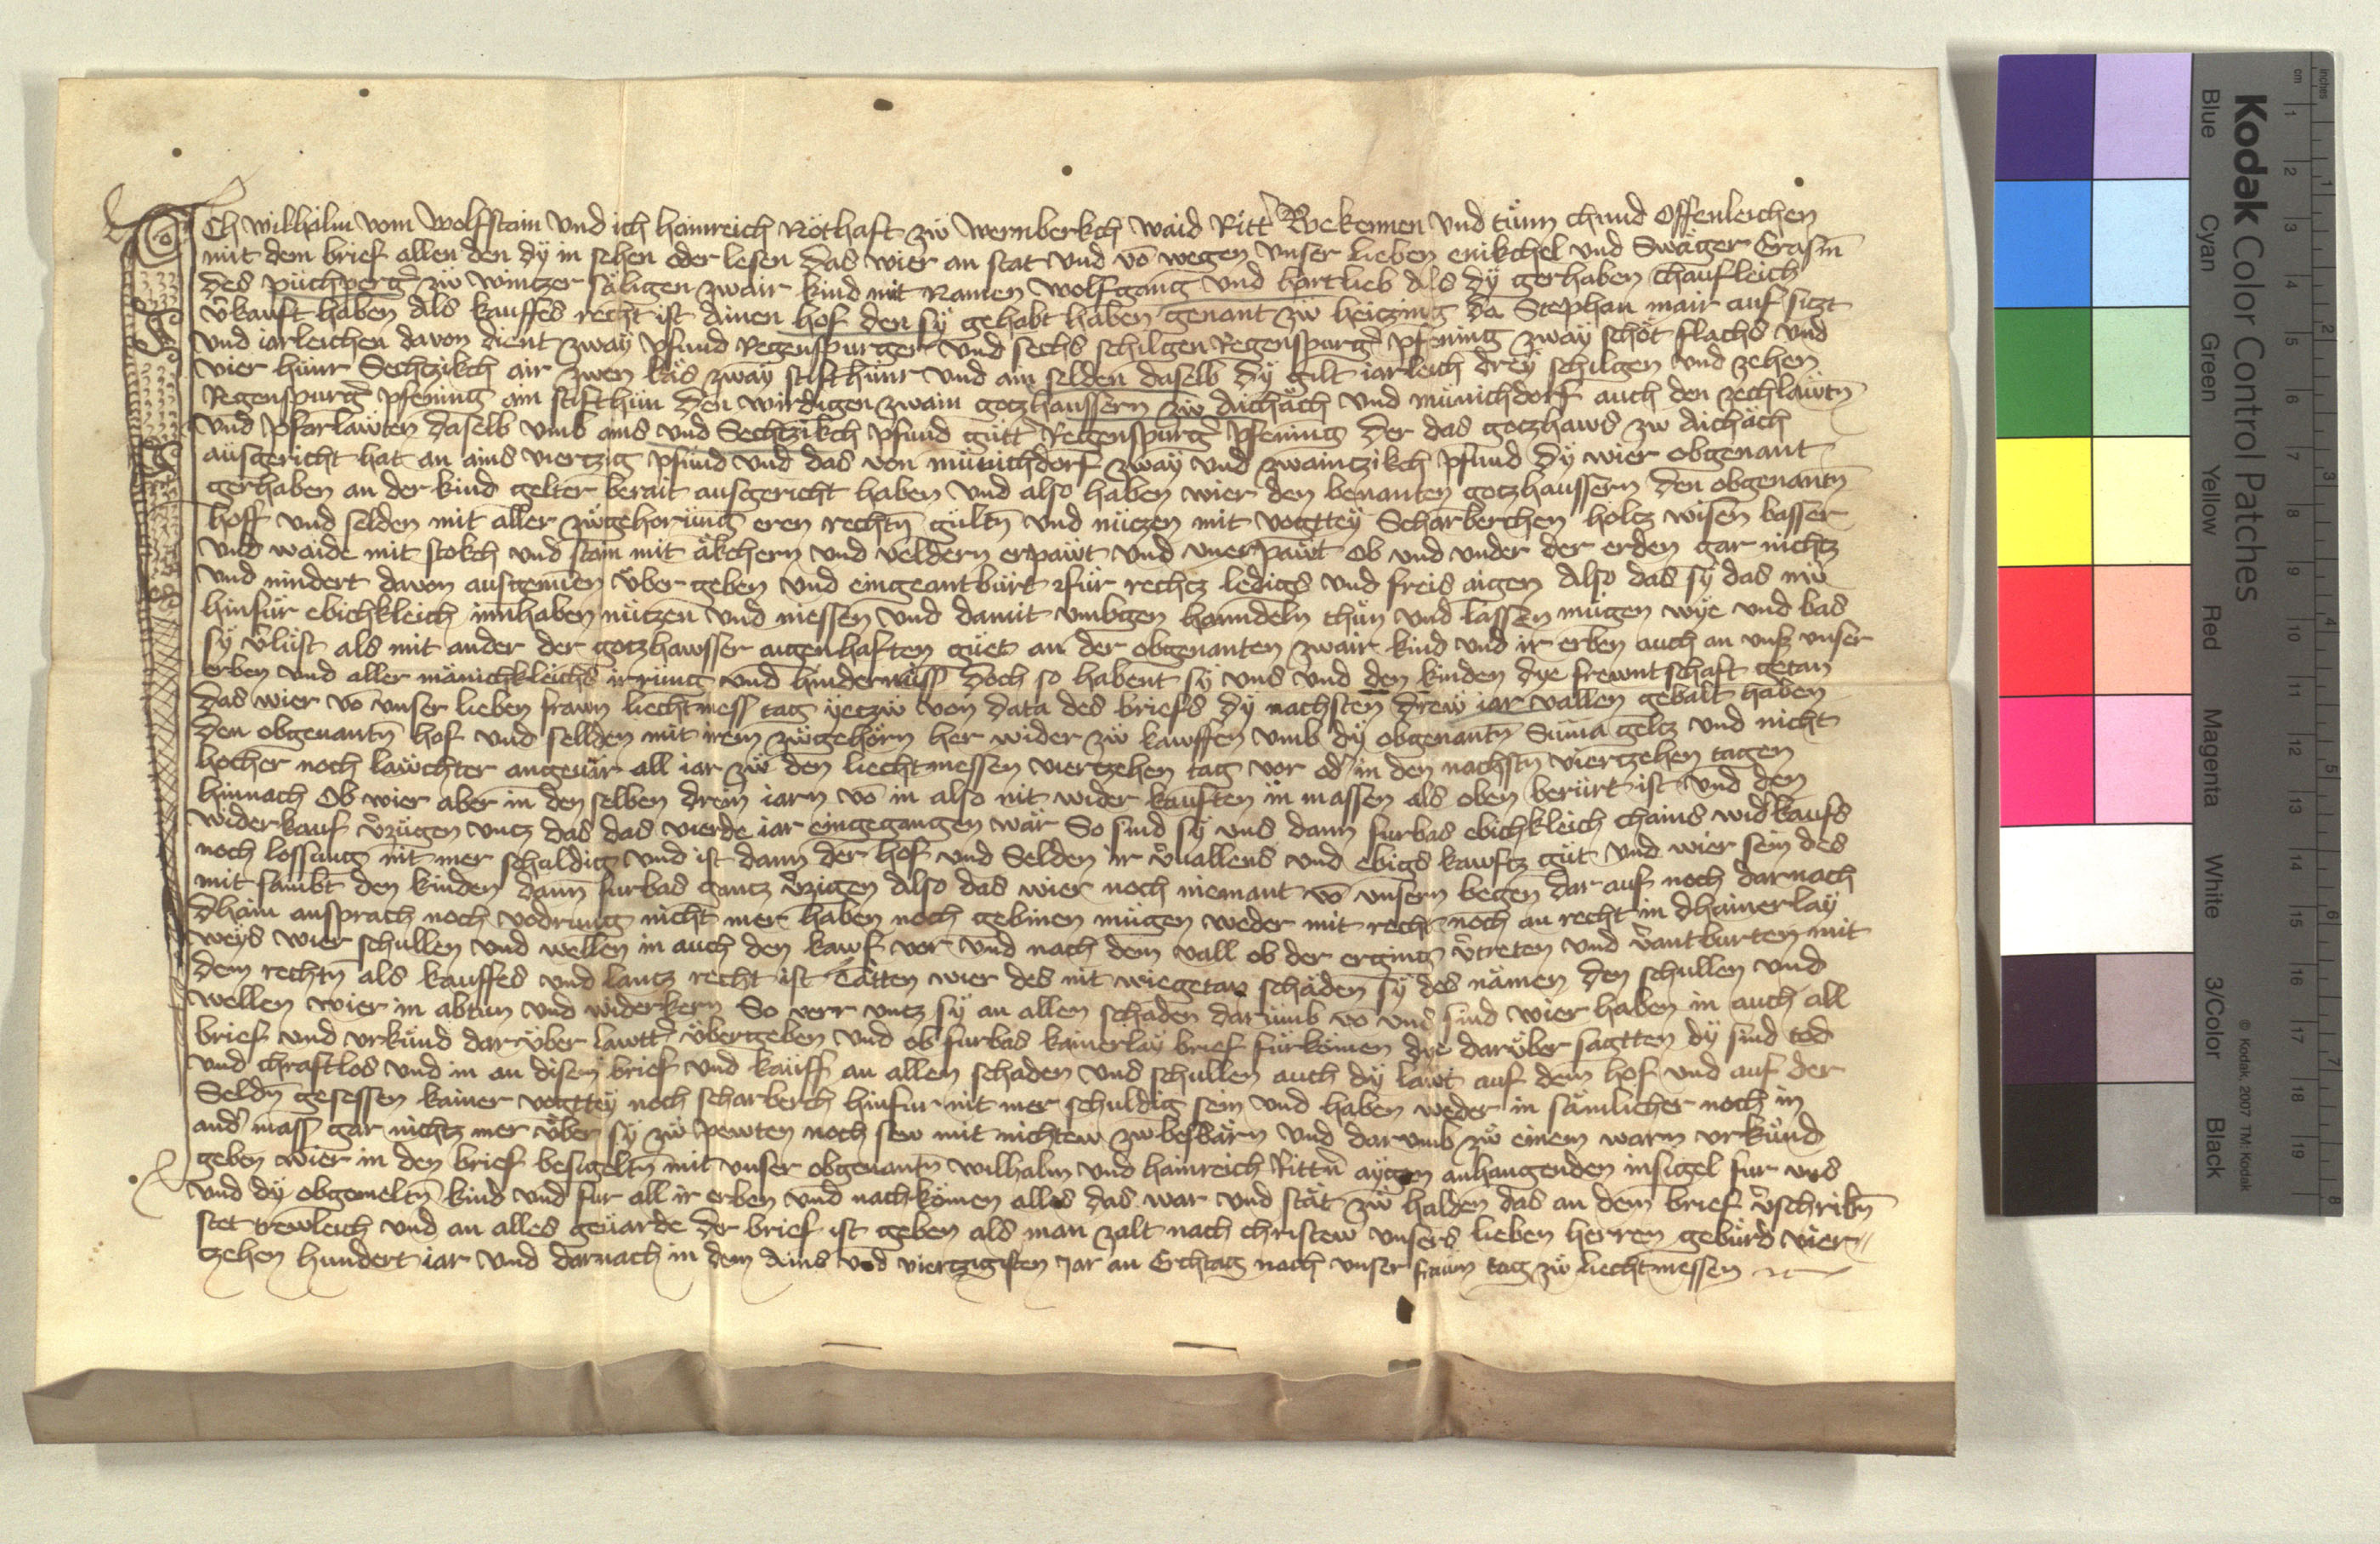 ICh wilhalm vom Wolfstain vnd ich hainreich Nöthaft zẅ wernberkch waid Ritt' Bekennen vnd tůnn chund Offenleichen
mit dem brief allen den dÿ in sehen oder lesen das wier an stat vnd vō wegen vnser lieben enikchel vnd Swäger Erasm̄
des puchperg' zẅ wintzer säligen zwair kind mit Namen wolfgang vnd hartlieb als dÿ gerhaben chaufleich
v'kauft haben als kauffes recht ist ainen hof den sÿ gehabt haben genant zẅ heitzing da Stephan mair auf siczt
vnd iarleichen davon dient zwaÿ pfund Regenspurger vnd sechs schilgen Regenspurg' pfening zwaÿ schöt flachs vnd
vier hünr Sechtzikch air zwen käs zwaÿ stifthünr vnd ain selden daselb dÿ gilt iarleich dreÿ schilgen vnd zehen
Regenspurg' pfening ain stifthün den wirdigen zwain gotzhaussern zẅ aichäch vnd münichdorf auch den zechläwtn̄
vnd pfarläwten daselb vmb ains vnd Sechtzikch pfund gütt' Regenspurg' pfening der das gotzhaws zw aichäch
ausgericht hat an ains viertzig pfund vnd das von münichdorf zwaÿ vnd zwaintzikch pfund dÿ wier obgenant
gerhaben an der kind gelter berait ausgericht haben vnd also haben wier den benanten gotzhaussern den obgenantn̄
hoff vnd selden mit aller zẅgehorüng eren rechtn̄ gültn̄ vnd nüczen mit vogttëÿ Scharberchen holtz wisen basser
vnd waide mit stokch vnd stain mit äkchern vnd veldern erpäwt vnd vnerpäwt ob vnd vnder der erden gar nichtz
vnd nindert davon ausgenuen v̈ber geben vnd eingeantbürt für rechtz ledigs vnd freis aigen Also das sÿ das nw̄
hinfür ebichkleich innhaben nützen vnd niessen vnd damit vmbgen hanndeln thün vnd lassen mügen wÿe vnd bas
sÿ v'lüst als mit ander der gotzhawsser aigenhaften güet an der obgenanten zwair kind vnd ir erben auch an vnß vnser
erben vnd aller mänichkleichs irrüng vnd hindernüss Doch so habent sÿ vns vnd den kinden dye frewntschaft getan
das wier vō vnser lieben frawn liechtmess tag ÿetzw von data des briefs dÿ nachsten drew iar vallen gebalt haben
den obgenantn̄ hof vnd sellden mit irem zẅgehörn her wider zẅ kawffen vmb dÿ obgenantn̄ Suma geltz vnd nicht
hocher noch läwchter angeuär all iar zẅ den liechtmessen viertzehen tag vor od' in den nachstn̄ viertzehen tagen
hinnach Ob wier aber in den selben drein iarn vō in also nit wider kauften in massen als oben berürt ist vnd den
widerkauf v'zügen vntz das das vierde iar eingegangen wär So sind sÿ vns dann furbas ebichkleich chains wid'kaufs
noch lossung nit mer schuldig vnd ist dann der hof vnd Selden ir v'uallens vnd ebigs kawftz güt vnd wier sein des
mit sambt den kinden dann furbas gantz v'zigen Also das wier noch niemant vō vnsern begen dar auf noch darnach
dhain ansprach noch vodrung nicht mer haben noch gebinen mügen weder mit recht noch an recht in dhainerlaÿ
weÿs wier schullen vnd wellen in auch den kawf vor vnd nach dem vall ob der erging v'treten vnd v'antburten mit
dem rechtn̄ als kauffes vnd lantz recht ist Tätten wier des nit wiegetan schäden sÿ des nämen den schullen vnd
wellen wier in abtun vnd widerkern So verr vntz sÿ an allen schaden darumb vō vns sind wier haben in auch all
brief vnd vrkünd darv̈ber lawtt' v̈bergeben vnd ob furbas kainerlaÿ brief fürkömen dÿe darv̈ber sagtten dÿ sind tod
vnd chraftlos vnd in an disem brief vnd kauff an allen schaden vns schullen auch dÿ läwt auf dem hof vnd auf der
Seldn̄ gesessen kainer vogttëÿ noch scharberch hinfur nit mer schuldig sein vnd haben weder in sämlicher noch in
and' mass gar nichtz mer v̈ber sÿ zẅ pewten noch sew mit nichtew zw besbärn vnd darumb zẅ einem warn vrkünd
geben wier in den brief besigeltn̄ mit vnser obgenantn̄ wilhalm vnd hainreich Rittn' aÿgen anhangenden insigel fur vns
vnd dÿ obgemeltn̄ kind vnd fur all ir erben vnd nachkömen alles das war vnd stät zẅ halden das an dem brief v'schribn̄
stet trewleich vnd an alles geuarde der brief ist geben als man zalt nach christew vnsers lieben herren gebürd vier
tzehen hundert iar vnd darnach in dem Ains vnd viertzigisten Jar an Erchtag nach vnser frawn tag zẅ liechtmessen
Kodak Color Control Patches
Blue Cyan Green Yellow Red Magenta White 3/Color Black
© Kodak, 2007 TM: Kodak
inches 1 2 3 4 5 6 7 8
cm 1 2 3 4 5 6 7 8 9 10 11 12 13 14 15 16 17 18 19